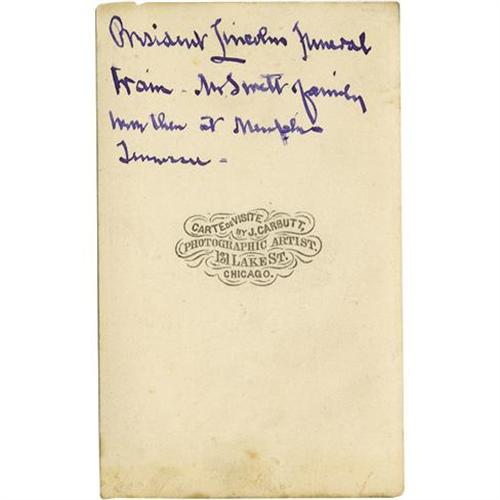 President Lincolns Funeral
train - Mr Smett family
were then at Memphis
Tennessee -
CARTE DE VISITE
BY J. CARBUTT,
PHOTOGRAPHIC ARTIST.
131 LAKE ST.
CHICAGO.